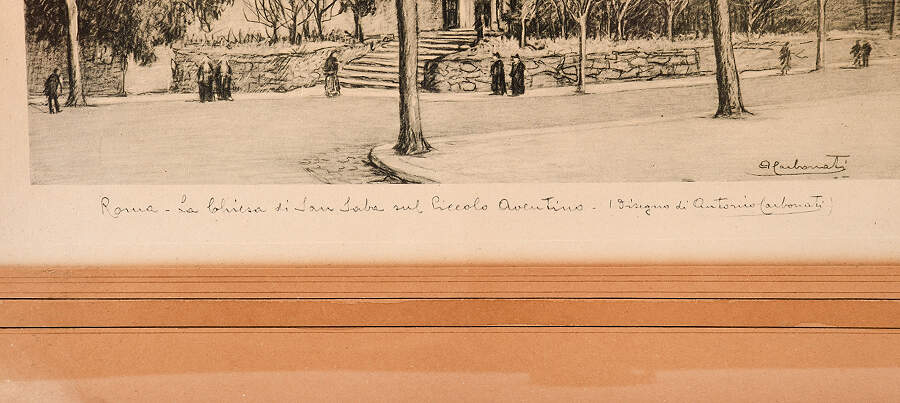 ACarbonati
Roma - La Chiesa di San Saba sul Piccolo Aventino - (Disegno di Antonio Carbonati)